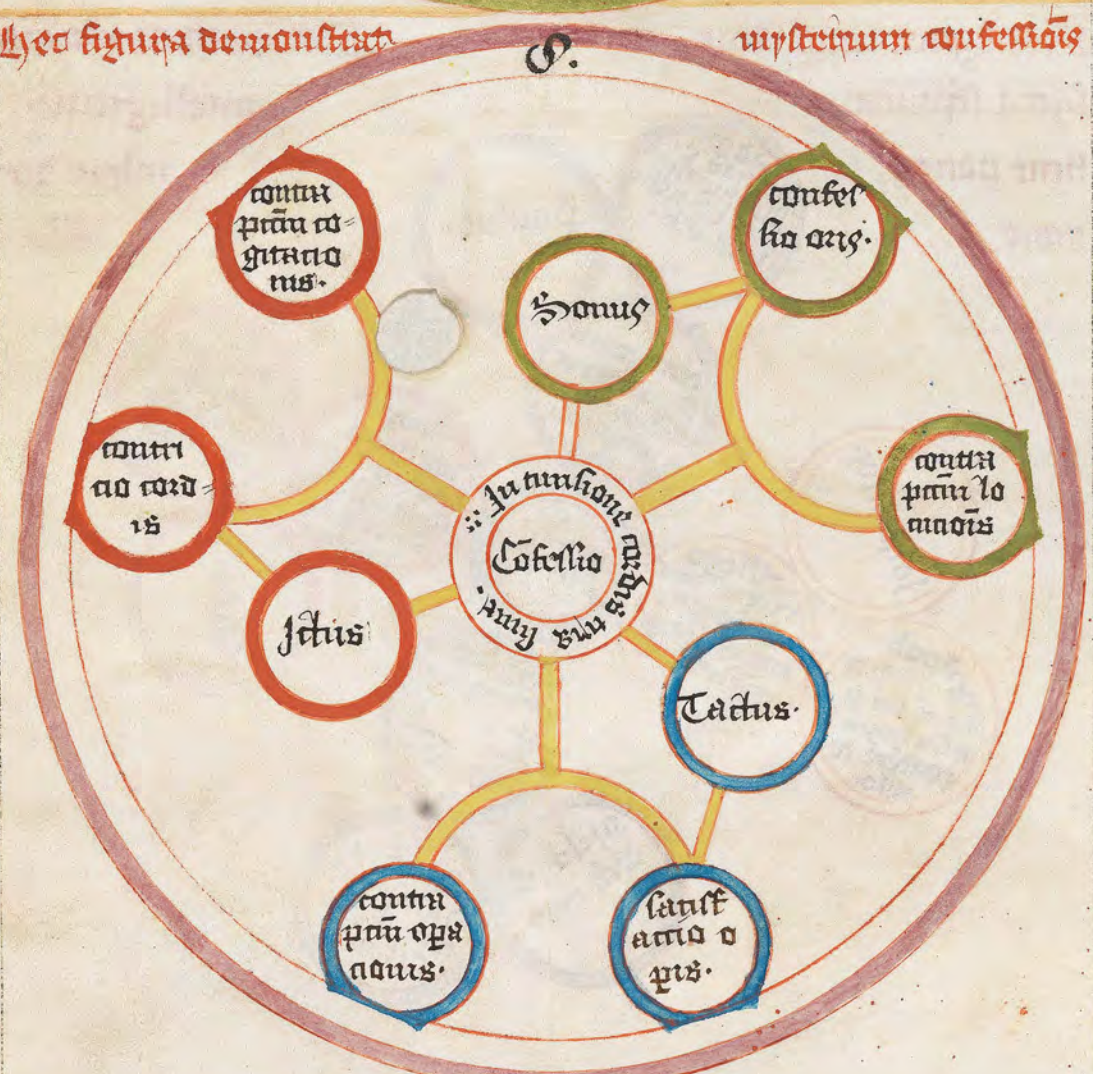 Hec figura demonstrat misterium confessiōis
S.
contra
pctm̄ co-
gitatio
nis.
confes
sio oris.
Sonus
contri
cio cord-
is
contra
pctm̄ lo
cucionis
In tunsione cordis tria sunt.
Cōfessio
Ictus
Tactus.
contra
pctm̄ opa
cionis.
satisf
actio o
pis.